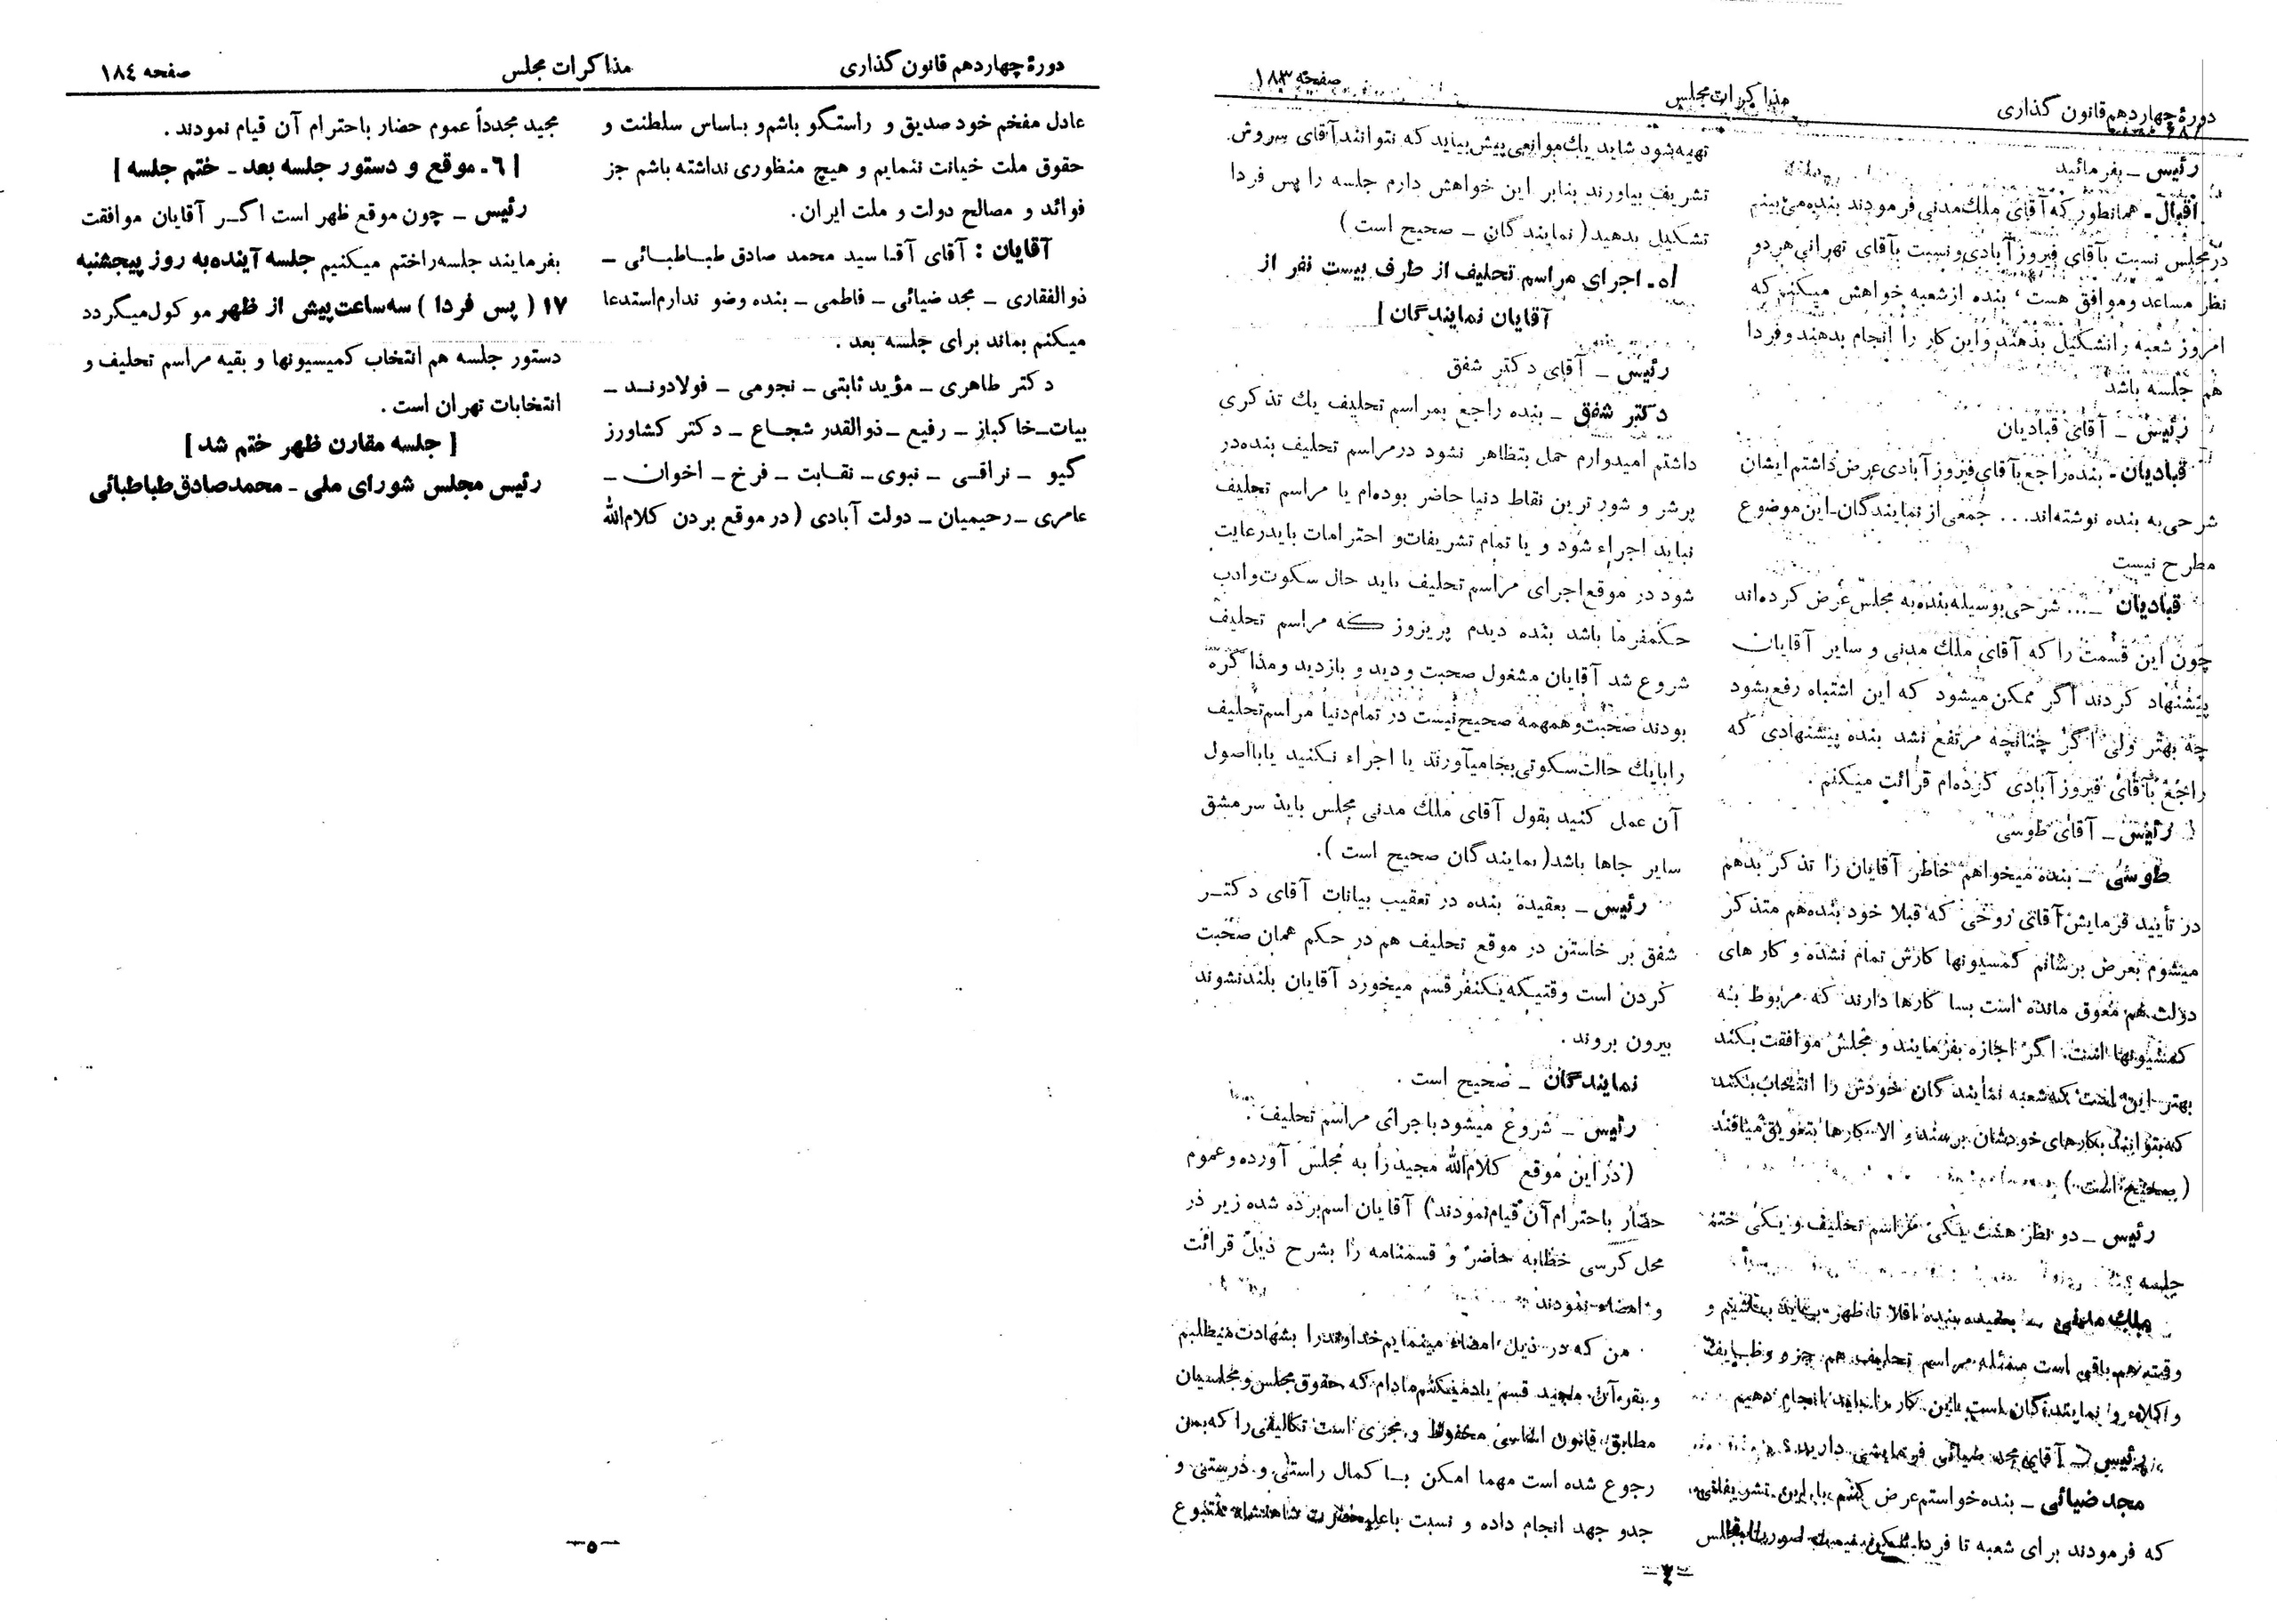 دورهٔ چهاردهم قانون گذاری
مذاکرات مجلس
صفحه ۱۸۳
رئیس ـ بفرمائید
اقبال ـ همانطور که آقای ملك مدنی فرمودند بنده می بینم
در مجلس نسبت بآقای فیروز آبادی و نسبت بآقای تهرانی هر دو
نظر مساعد و موافق هست ، بنده از شعبه خواهش میکنم که
امروز شعبه را تشکیل بدهند و این کار را انجام بدهند و فردا
هم جلسه باشد
رئیس ـ آقای قبادیان
قبادیان ـ بنده راجع بآقای فیروز آبادی عرض داشتم ایشان
شرحی به بنده نوشته‌اند... جمعی از نمایندگان ـ این موضوع
مطرح نیست
قبادیان ـ ... شرحی بوسیله بنده به مجلس عرض کرده‌اند
چون این قسمت را که آقای ملك مدنی و سایر آقایان
پیشنهاد کردند اگر ممکن میشود که این اشتباه رفع بشود
چه بهتر ولی اگر چنانچه مرتفع نشد بنده پیشنهادی که
راجع بآقای فیروز آبادی کرده‌ام قرائت میکنم .
رئیس ـ آقای طوسی
طوسی ـ بنده میخواهم خاطر آقایان را تذکر بدهم
در تأیید فرمایش آقای روحی که قبلا خود بنده هم متذکر
میشوم بعرض برسانم کمسیونها کارش تمام نشده و کار های
دولت هم معوق مانده است بسا کارها دارند که مربوط به
کمسیونها است. اگر اجازه بفرمایند و مجلس موافقت بکند
بهتر این است که شعبه نمایندگان خودش را انتخاب بکند
که بتوانند بکارهای خودشان برسند و الا کارها بتعویق میافتد
(صحیح است)
رئیس ـ دو نظر هست یکی مراسم تحلیف و یکی ختم
جلسه
ملك مدنی ـ بعقیده بنده اقلا تا ظهر باید بنشینیم و
وقت هم باقی است مسئله مراسم تحلیف هم جزو وظایف
وکلاء و نمایندگان است این کار را باید انجام دهیم
رئیس ـ آقای مجد ضیائی فرمایشی دارید؟
مجد ضیائی ـ بنده خواستم عرض کنم با این تشریفاتی
که فرمودند برای شعبه تا فردا ممکن نیست صورت مجلس
تهیه شود شاید یك موانعی پیش بیاید که نتوانند آقای سروش
تشریف بیاورند بنابر این خواهش دارم جلسه را پس فردا
تشکیل بدهید ( نمایندگان ـ صحیح است )
[۵ ـ اجرای مراسم تحلیف از طرف بیست نفر از
آقایان نمایندگان]
رئیس ـ آقای دکتر شفق
دکتر شفق ـ بنده راجع بمراسم تحلیف یك تذکری
داشتم امیدوارم حمل بتظاهر نشود در مراسم تحلیف بنده در
پرشر و شور ترین نقاط دنیا حاضر بوده‌ام یا مراسم تحلیف
نباید اجراء شود و یا تمام تشریفات و احترامات باید رعایت
شود در موقع اجرای مراسم تحلیف باید حال سکوت و ادب
حکمفرما باشد بنده دیدم پریروز که مراسم تحلیف
شروع شد آقایان مشغول صحبت و دید و بازدید و مذاکره
بودند صحبت و همهمه صحیح نیست در تمام دنیا مراسم تحلیف
را با یك حالت سکوتی بجا میآورند یا اجراء نکنید یا با اصول
آن عمل کنید بقول آقای ملك مدنی مجلس باید سرمشق
سایر جاها باشد ( نمایندگان صحیح است ).
رئیس ـ بعقیدهٔ بنده در تعقیب بیانات آقای دکتر
شفق بر خاستن در موقع تحلیف هم در حکم همان صحبت
کردن است وقتیکه یکنفر قسم میخورد آقایان بلند نشوند
بیرون بروند .
نمایندگان ـ صحیح است .
رئیس ـ شروع میشود باجرای مراسم تحلیف .
(در این موقع کلام‌الله مجید را به مجلس آورده و عموم
حضار باحترام آن قیام نمودند) آقایان اسم برده شده زیر در
محل کرسی خطابه حاضر و قسمنامه را بشرح ذیل قرائت
و امضاء نمودند
من که در ذیل امضاء مینمایم خداوند را بشهادت میطلبم
و بقرآن مجید قسم یاد میکنم مادام که حقوق مجلس و مجلسیان
مطابق قانون اساسی محفوظ و مجری است تکالیفی را که بمن
رجوع شده است مهما امکن با کمال راستی و درستی و
جدو جهد انجام داده و نسبت باعلیحضرت شاهنشاه متبوع
ـ ٤ ـ
دورهٔ چهاردهم قانون گذاری
مذاکرات مجلس
صفحه ۱۸٤
عادل مفخم خود صدیق و راستگو باشم و باساس سلطنت و
حقوق ملت خیانت ننمایم و هیچ منظوری نداشته باشم جز
فوائد و مصالح دولت و ملت ایران.
آقایان : آقای آقا سید محمد صادق طباطبائی ـ
ذوالفقاری ـ مجد ضیائی ـ فاطمی ـ بنده وضو ندارم استدعا
میکنم بماند برای جلسه بعد .
دکتر طاهری ـ مؤید ثابتی ـ نجومی ـ فولادوند ـ
بیات ـ خاکباز ـ رفیع ـ ذوالقدر شجاع ـ دکتر کشاورز
گیو ـ نراقی ـ نبوی ـ نقابت ـ فرخ ـ اخوان ـ
عامری ـ رحیمیان ـ دولت آبادی ( در موقع بردن کلام‌الله
مجید مجدداً عموم حضار باحترام آن قیام نمودند .
[٦ ـ موقع و دستور جلسه بعد ـ ختم جلسه ]
رئیس ـ چون موقع ظهر است اگر آقایان موافقت
بفرمایند جلسه راختم میکنیم جلسه آینده به روز پنجشنبه
۱۷ ( پس فردا ) سه ساعت پیش از ظهر موکول میگردد
دستور جلسه هم انتخاب کمیسیونها و بقیه مراسم تحلیف و
انتخابات تهران است .
[ جلسه مقارن ظهر ختم شد ]
رئیس مجلس شورای ملی ـ محمد صادق طباطبائی
ـ ۵ ـ